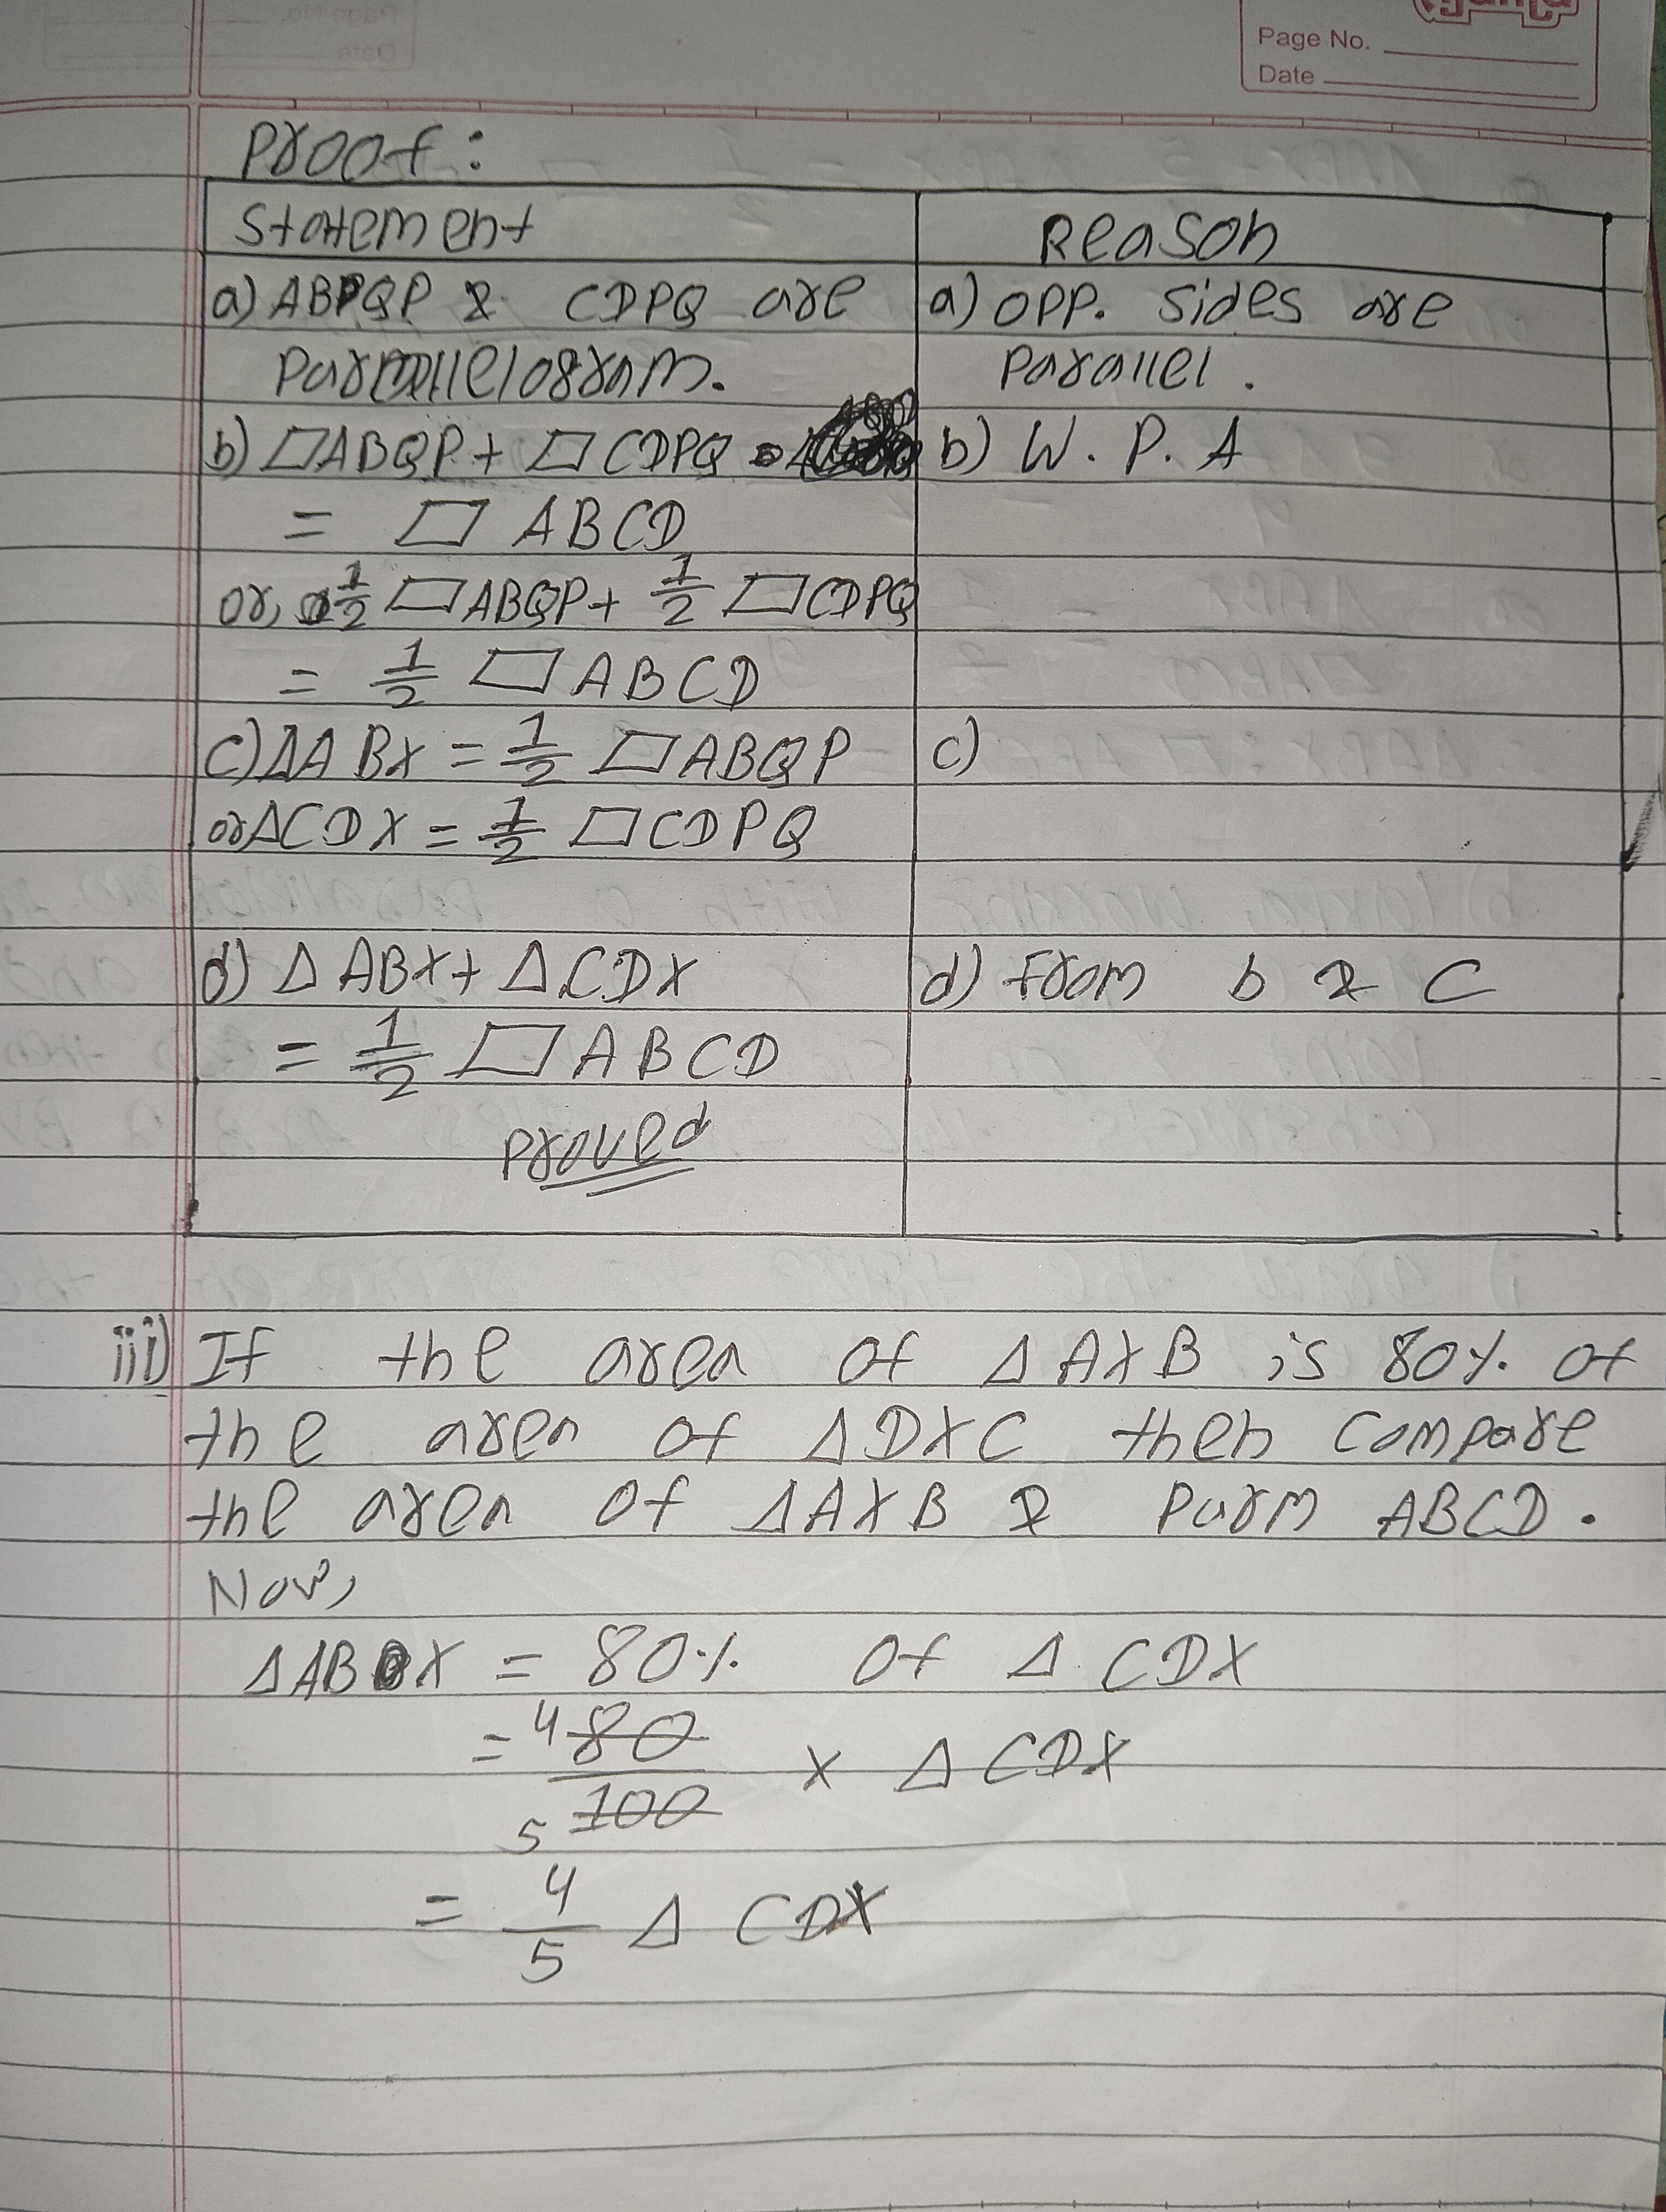 Page No.
Date
Proof:
Statement Reason
a) ABPQP & CDPQ are a) opp. sides are
Parallelogram. Parallel.
b) ▱ABQP + ▱CDPQ b) W.P.A
= ▱ ABCD
or, 1/2 ▱ABQP + 1/2 ▱CDPQ
= 1/2 ▱ABCD
c) ΔABX = 1/2 ▱ABQP c)
or ΔCDX = 1/2 ▱CDPQ
d) ΔABX + ΔCDX d) from b & C
= 1/2 ▱ABCD
Proved
iii) If the area of ΔAXB is 80% of
the area of ΔDXC then compare
the area of ΔAXB & Parm ABCD.
Now,
ΔABX = 80% of ΔCDX
= 4 80/100 5 × ΔCDX
= 4/5 ΔCDX